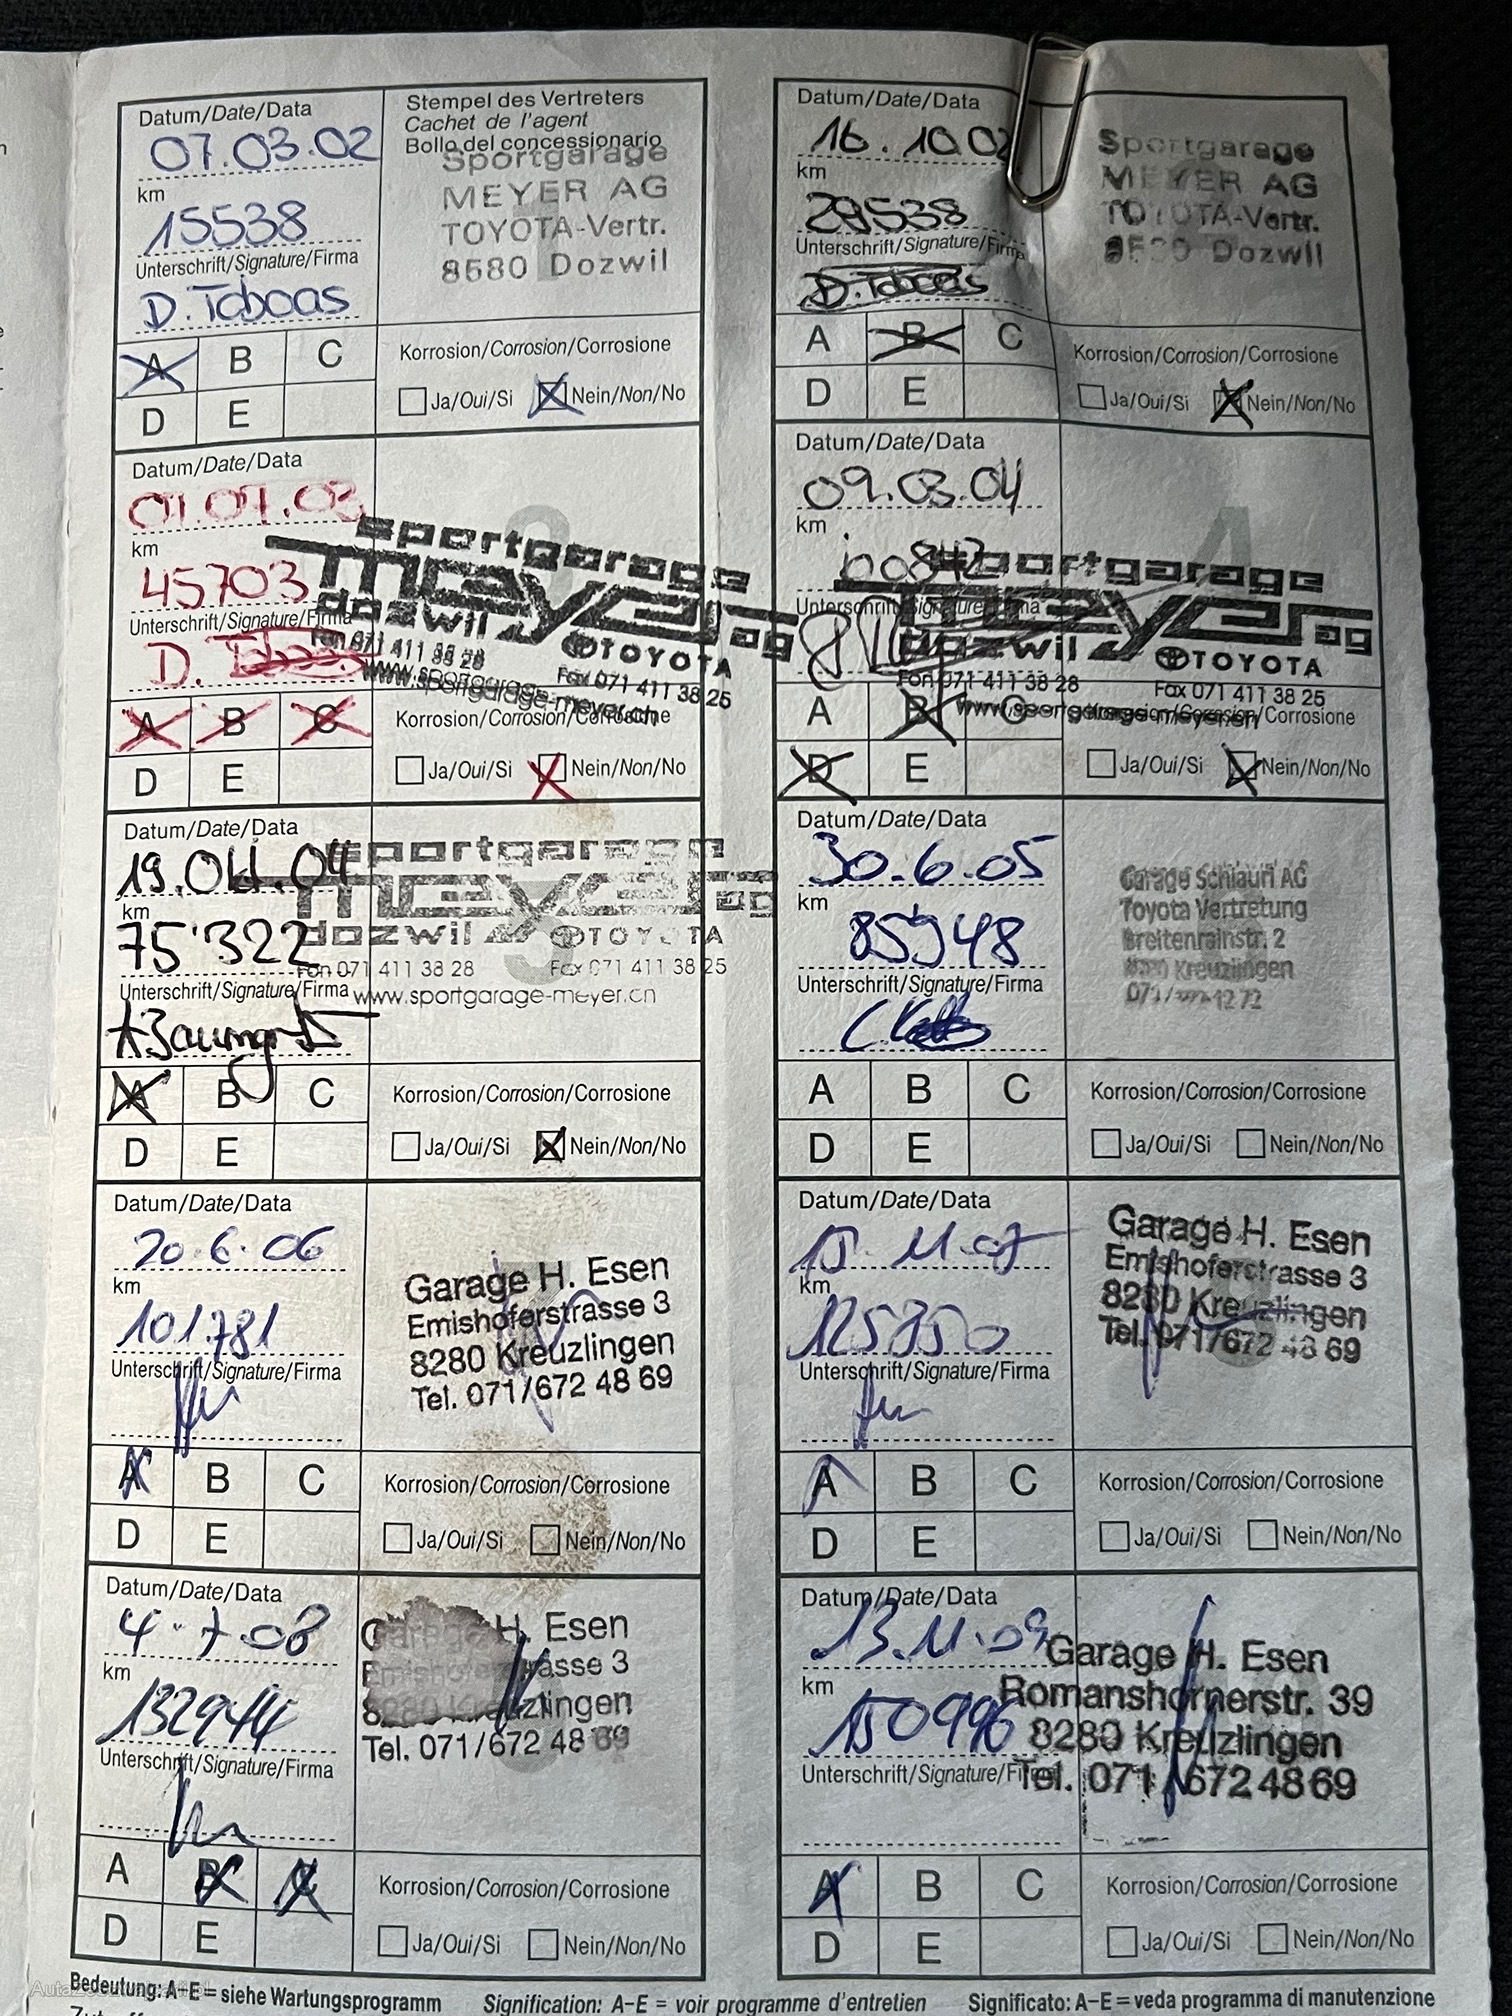 Datum/Date/Data
07.03.02
km
15538
Unterschrift/Signature/Firma
D. Taboas
Stempel des Vertreters
Cachet de l'agent
Bollo del concessionario
Sportgarage
MEYER AG
TOYOTA-Vertr.
8580 Dozwil
A B C
D E
Korrosion/Corrosion/Corrosione
Ja/Oui/Si Nein/Non/No
Datum/Date/Data
16.10.02
km
29538
Unterschrift/Signature/Firma
D. Taboas
Sportgarage
MEYER AG
TOYOTA-Vertr.
8580 Dozwil
A B C
D E
Korrosion/Corrosion/Corrosione
Ja/Oui/Si Nein/Non/No
Datum/Date/Data
01.07.03
km
45703
Unterschrift/Signature/Firma
D. Taboas
3
sportgarage
meyer ag
dozwil TOYOTA
Fon 071 411 38 28 Fax 071 411 38 25
www.sportgarage-meyer.ch
A B C
D E
Korrosion/Corrosion/Corrosione
Ja/Oui/Si Nein/Non/No
Datum/Date/Data
09.03.04
km
60842
Unterschrift/Signature/Firma
4
sportgarage
meyer ag
dozwil TOYOTA
Fon 071 411 38 28 Fax 071 411 38 25
A B C
D E
Korrosion/Corrosion/Corrosione
Ja/Oui/Si Nein/Non/No
Datum/Date/Data
19.Okt.04
km
75'322
Unterschrift/Signature/Firma
5
sportgarage
meyer ag
dozwil TOYOTA
Fon 071 411 38 28 Fax 071 411 38 25
www.sportgarage-meyer.ch
A B C
D E
Korrosion/Corrosion/Corrosione
Ja/Oui/Si Nein/Non/No
Datum/Date/Data
30.6.05
km
85948
Unterschrift/Signature/Firma
Garage Schlauri AG
Toyota Vertretung
Breitenrainstr. 2
Kreuzlingen
A B C
D E
Korrosion/Corrosion/Corrosione
Ja/Oui/Si Nein/Non/No
Datum/Date/Data
20.6.06
km
101781
Unterschrift/Signature/Firma
Garage H. Esen
Emishoferstrasse 3
8280 Kreuzlingen
Tel. 071/672 48 69
A B C
D E
Korrosion/Corrosion/Corrosione
Ja/Oui/Si Nein/Non/No
Datum/Date/Data
15.11.07
km
125850
Unterschrift/Signature/Firma
Garage H. Esen
Emishoferstrasse 3
8280 Kreuzlingen
Tel. 071/672 48 69
A B C
D E
Korrosion/Corrosion/Corrosione
Ja/Oui/Si Nein/Non/No
Datum/Date/Data
4.7.08
km
132944
Unterschrift/Signature/Firma
Garage H. Esen
Emishoferstrasse 3
8280 Kreuzlingen
Tel. 071/672 48 69
A B C
D E
Korrosion/Corrosion/Corrosione
Ja/Oui/Si Nein/Non/No
Datum/Date/Data
13.11.09
km
150996
Unterschrift/Signature/Firma
Garage H. Esen
Romanshornerstr. 39
8280 Kreuzlingen
Tel. 071/672 48 69
A B C
D E
Korrosion/Corrosion/Corrosione
Ja/Oui/Si Nein/Non/No
Bedeutung: A-E = siehe Wartungsprogramm Signification: A-E = voir programme d'entretien Significato: A-E = veda programma di manutenzione